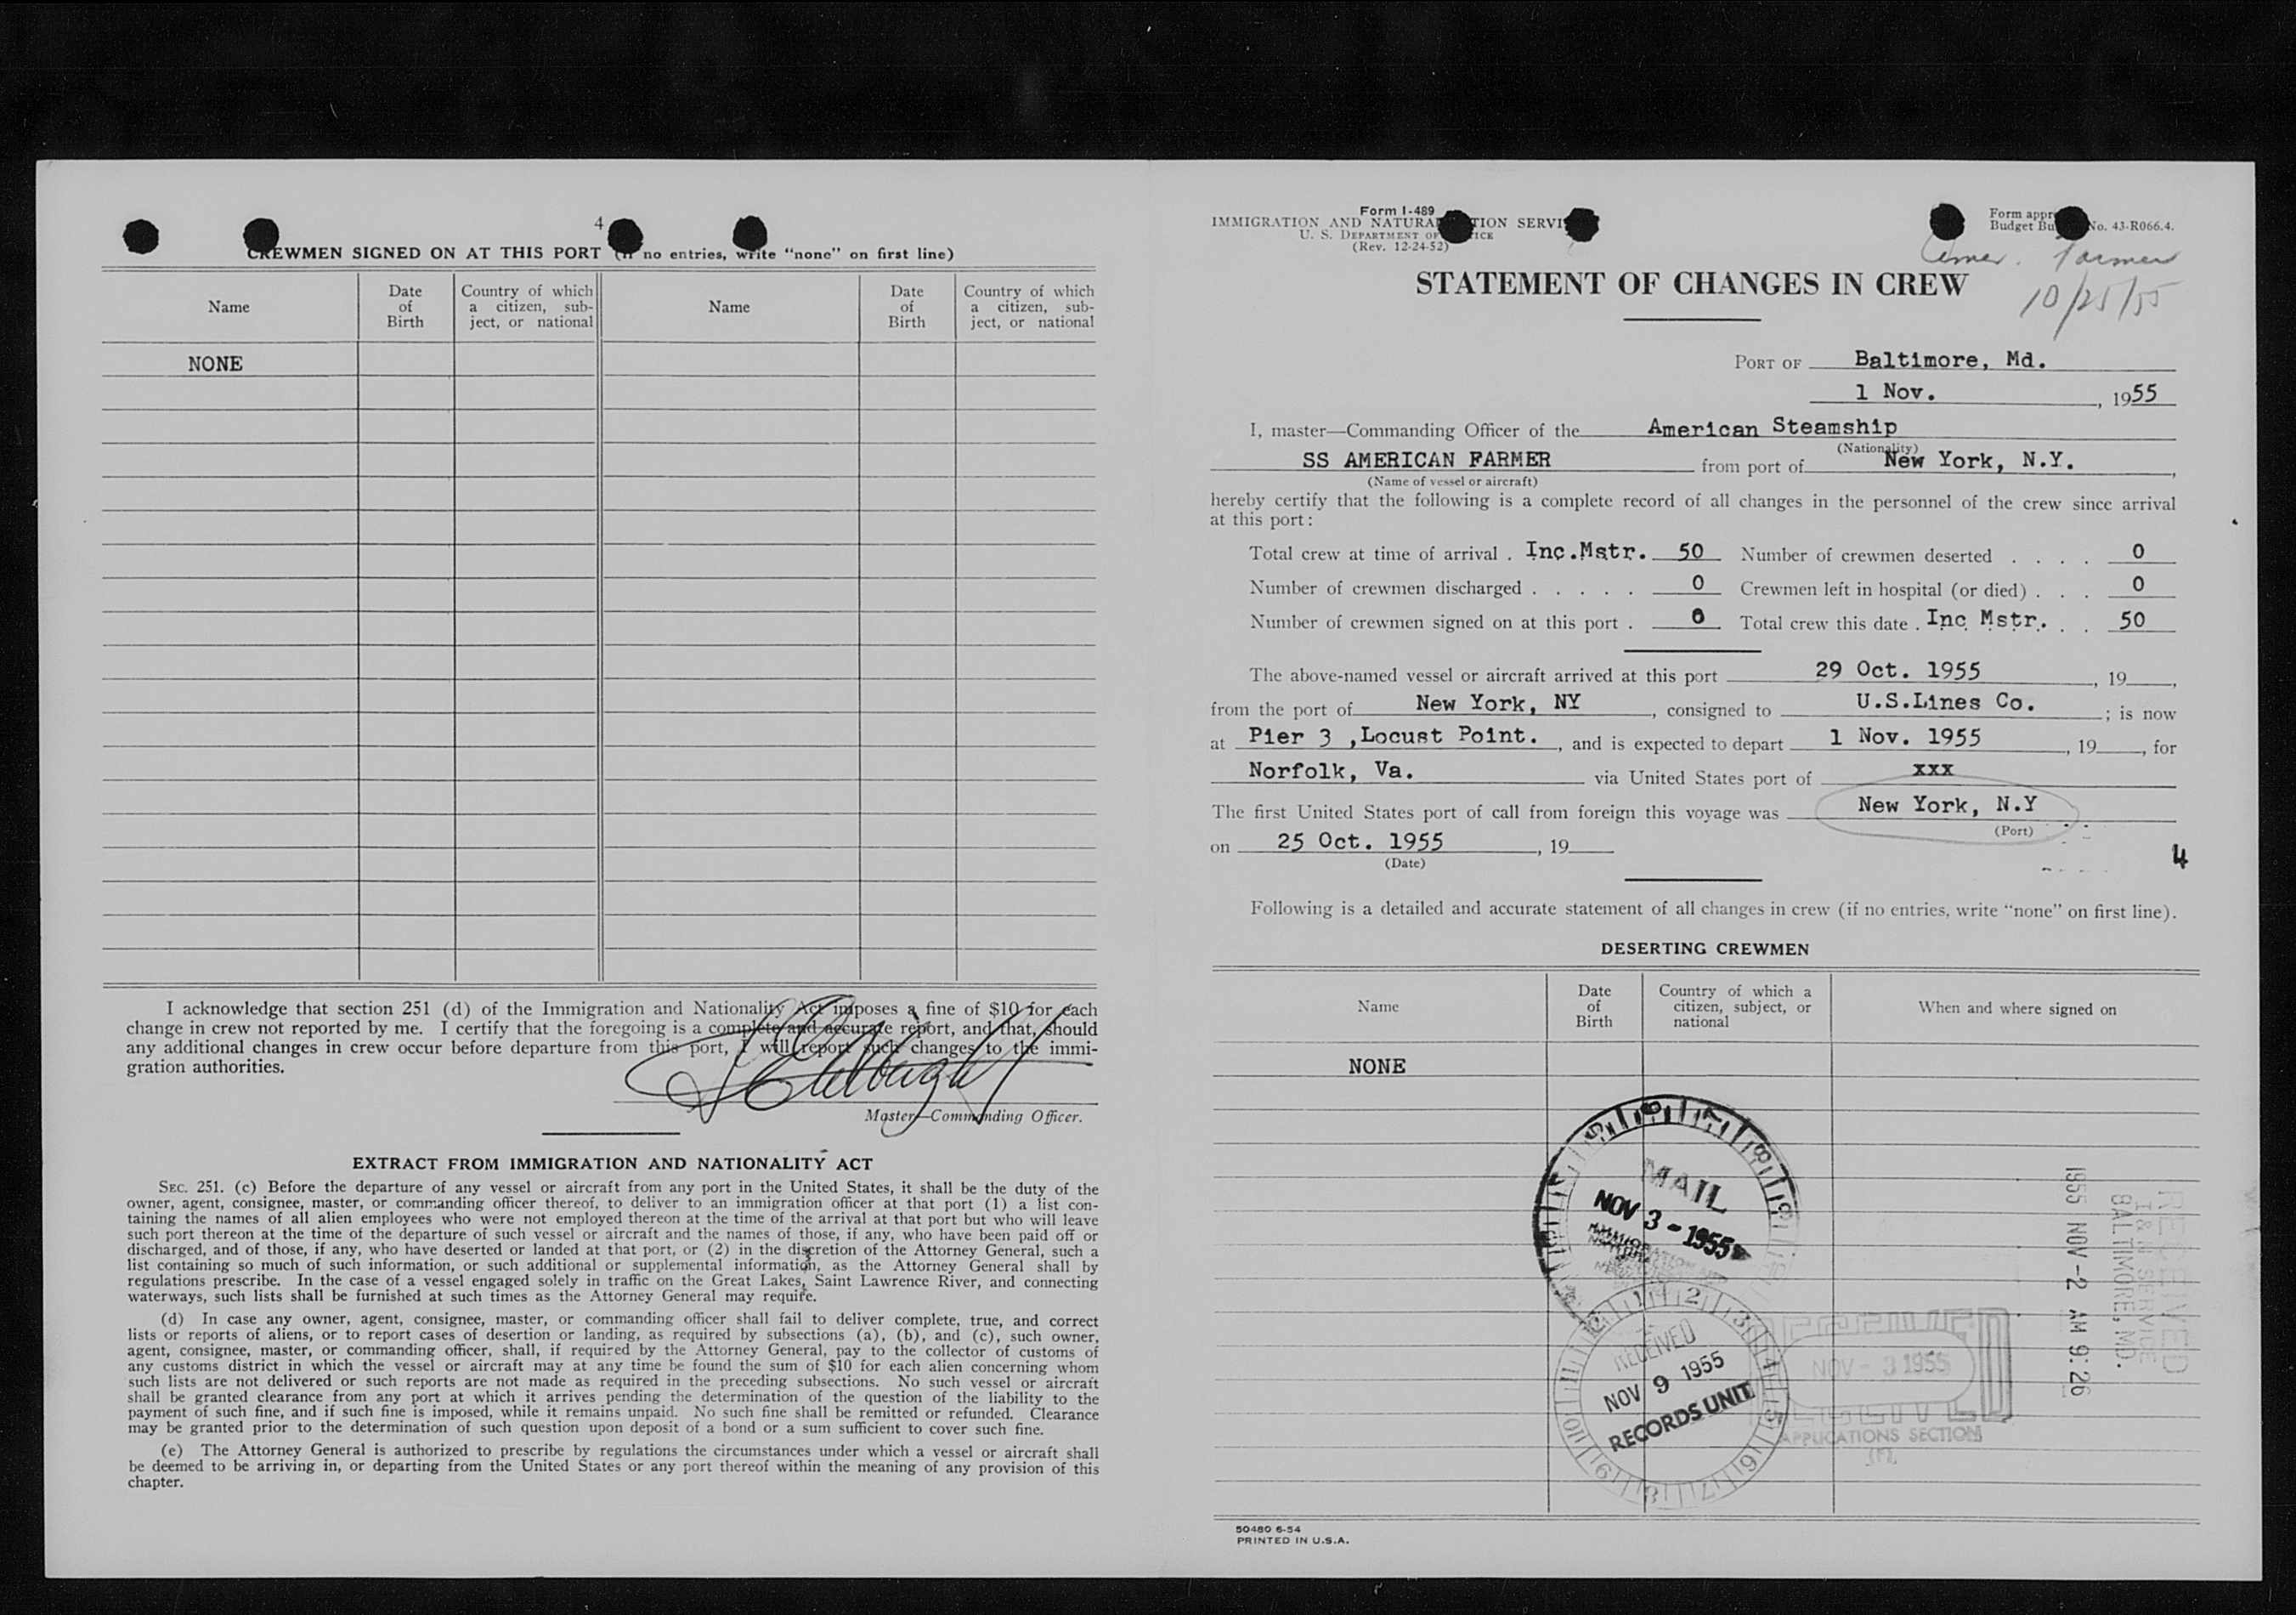 4
CREWMEN SIGNED ON AT THIS PORT (If no entries, write "none" on first line)
Name
Date of Birth
Country of which a citizen, sub-ject, or national
Name
Date of Birth
Country of which a citizen, sub-ject, or national
NONE
I acknowledge that section 251 (d) of the Immigration and Nationality Act imposes a fine of $10 for each
change in crew not reported by me. I certify that the foregoing is a complete and accurate report, and that, should
any additional changes in crew occur before departure from this port, I will report such changes to the immi-
gration authorities.
Master—Commanding Officer.
EXTRACT FROM IMMIGRATION AND NATIONALITY ACT
SEC. 251. (c) Before the departure of any vessel or aircraft from any port in the United States, it shall be the duty of the
owner, agent, consignee, master, or commanding officer thereof, to deliver to an immigration officer at that port (1) a list con-
taining the names of all alien employees who were not employed thereon at the time of the arrival at that port but who will leave
such port thereon at the time of the departure of such vessel or aircraft and the names of those, if any, who have been paid off or
discharged, and of those, if any, who have deserted or landed at that port, or (2) in the discretion of the Attorney General, such a
list containing so much of such information, or such additional or supplemental information, as the Attorney General shall by
regulations prescribe. In the case of a vessel engaged solely in traffic on the Great Lakes, Saint Lawrence River, and connecting
waterways, such lists shall be furnished at such times as the Attorney General may require.
(d) In case any owner, agent, consignee, master, or commanding officer shall fail to deliver complete, true, and correct
lists or reports of aliens, or to report cases of desertion or landing, as required by subsections (a), (b), and (c), such owner,
agent, consignee, master, or commanding officer, shall, if required by the Attorney General, pay to the collector of customs of
any customs district in which the vessel or aircraft may at any time be found the sum of $10 for each alien concerning whom
such lists are not delivered or such reports are not made as required in the preceding subsections. No such vessel or aircraft
shall be granted clearance from any port at which it arrives pending the determination of the question of the liability to the
payment of such fine, and if such fine is imposed, while it remains unpaid. No such fine shall be remitted or refunded. Clearance
may be granted prior to the determination of such question upon deposit of a bond or a sum sufficient to cover such fine.
(e) The Attorney General is authorized to prescribe by regulations the circumstances under which a vessel or aircraft shall
be deemed to be arriving in, or departing from the United States or any port thereof within the meaning of any provision of this
chapter.
Form I-489
IMMIGRATION AND NATURALIZATION SERVICE
U. S. DEPARTMENT OF JUSTICE
(Rev. 12-24-52)
Form appr
Budget Bu No. 43-R066.4.
Amer. Farmer
10/25/55
STATEMENT OF CHANGES IN CREW
PORT OF Baltimore, Md.
1 Nov. , 1955
I, master—Commanding Officer of the American Steamship
(Nationality)
SS AMERICAN FARMER from port of New York, N.Y. ,
(Name of vessel or aircraft)
hereby certify that the following is a complete record of all changes in the personnel of the crew since arrival
at this port:
Total crew at time of arrival . Inc.Mstr. 50 Number of crewmen deserted . . . . 0
Number of crewmen discharged . . . . . 0 Crewmen left in hospital (or died) . . . 0
Number of crewmen signed on at this port . 0 Total crew this date . Inc Mstr. . . 50
The above-named vessel or aircraft arrived at this port 29 Oct. 1955 , 19 ,
from the port of New York, NY , consigned to U.S.Lines Co. ; is now
at Pier 3 ,Locust Point. , and is expected to depart 1 Nov. 1955 , 19 , for
Norfolk, Va. via United States port of xxx
The first United States port of call from foreign this voyage was New York, N.Y
(Port)
on 25 Oct. 1955 , 19
(Date)
4
Following is a detailed and accurate statement of all changes in crew (if no entries, write "none" on first line).
DESERTING CREWMEN
Name
Date of Birth
Country of which a citizen, subject, or national
When and where signed on
NONE
MAIL
NOV 3 - 1955
RECEIVED
NOV 9 1955
RECORDS UNIT
NOV - 3 1955
RECEIVED
APPLICATIONS SECTION
RECEIVED
I & N SERVICE
BALTIMORE, MD.
1955 NOV -2 AM 9:26
50480 6-54
PRINTED IN U.S.A.